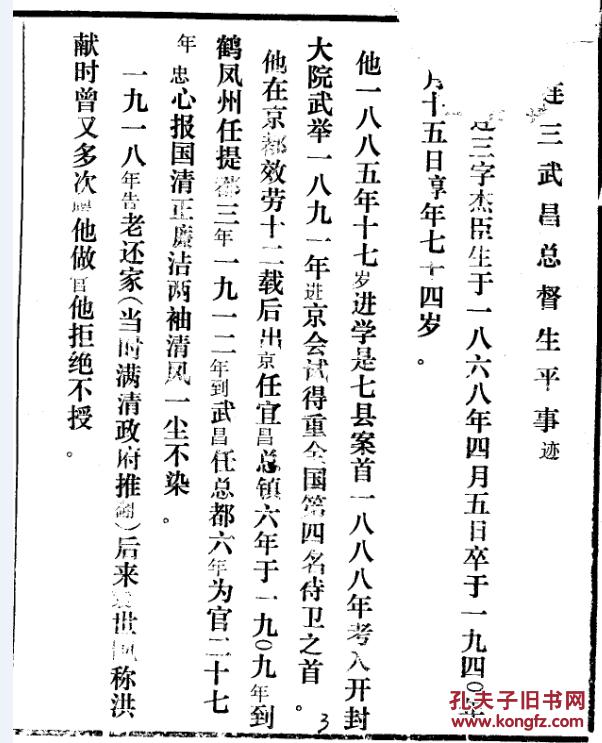 三武昌总督生平事迹
三字杰臣生于一八六八年四月五日卒于一九四〇年
月十五日享年七十四岁。
他一八八五年十七岁进学是七县案首一八八八年考入开封
大院武举一八九一年进京会试得重全国第四名侍卫之首。
他在京都效劳十二载后出京任宜昌总镇六年于一九〇九年到
鹤凤州任提都三年一九一二年到武昌任总都六年为官二十七
年忠心报国清正廉洁两袖清风一尘不染。
一九一八年告老还家(当时满清政府推翻)后来袁世凯称洪
献时曾又多次他做官他拒绝不授。
3
孔夫子旧书网
www.kongfz.com